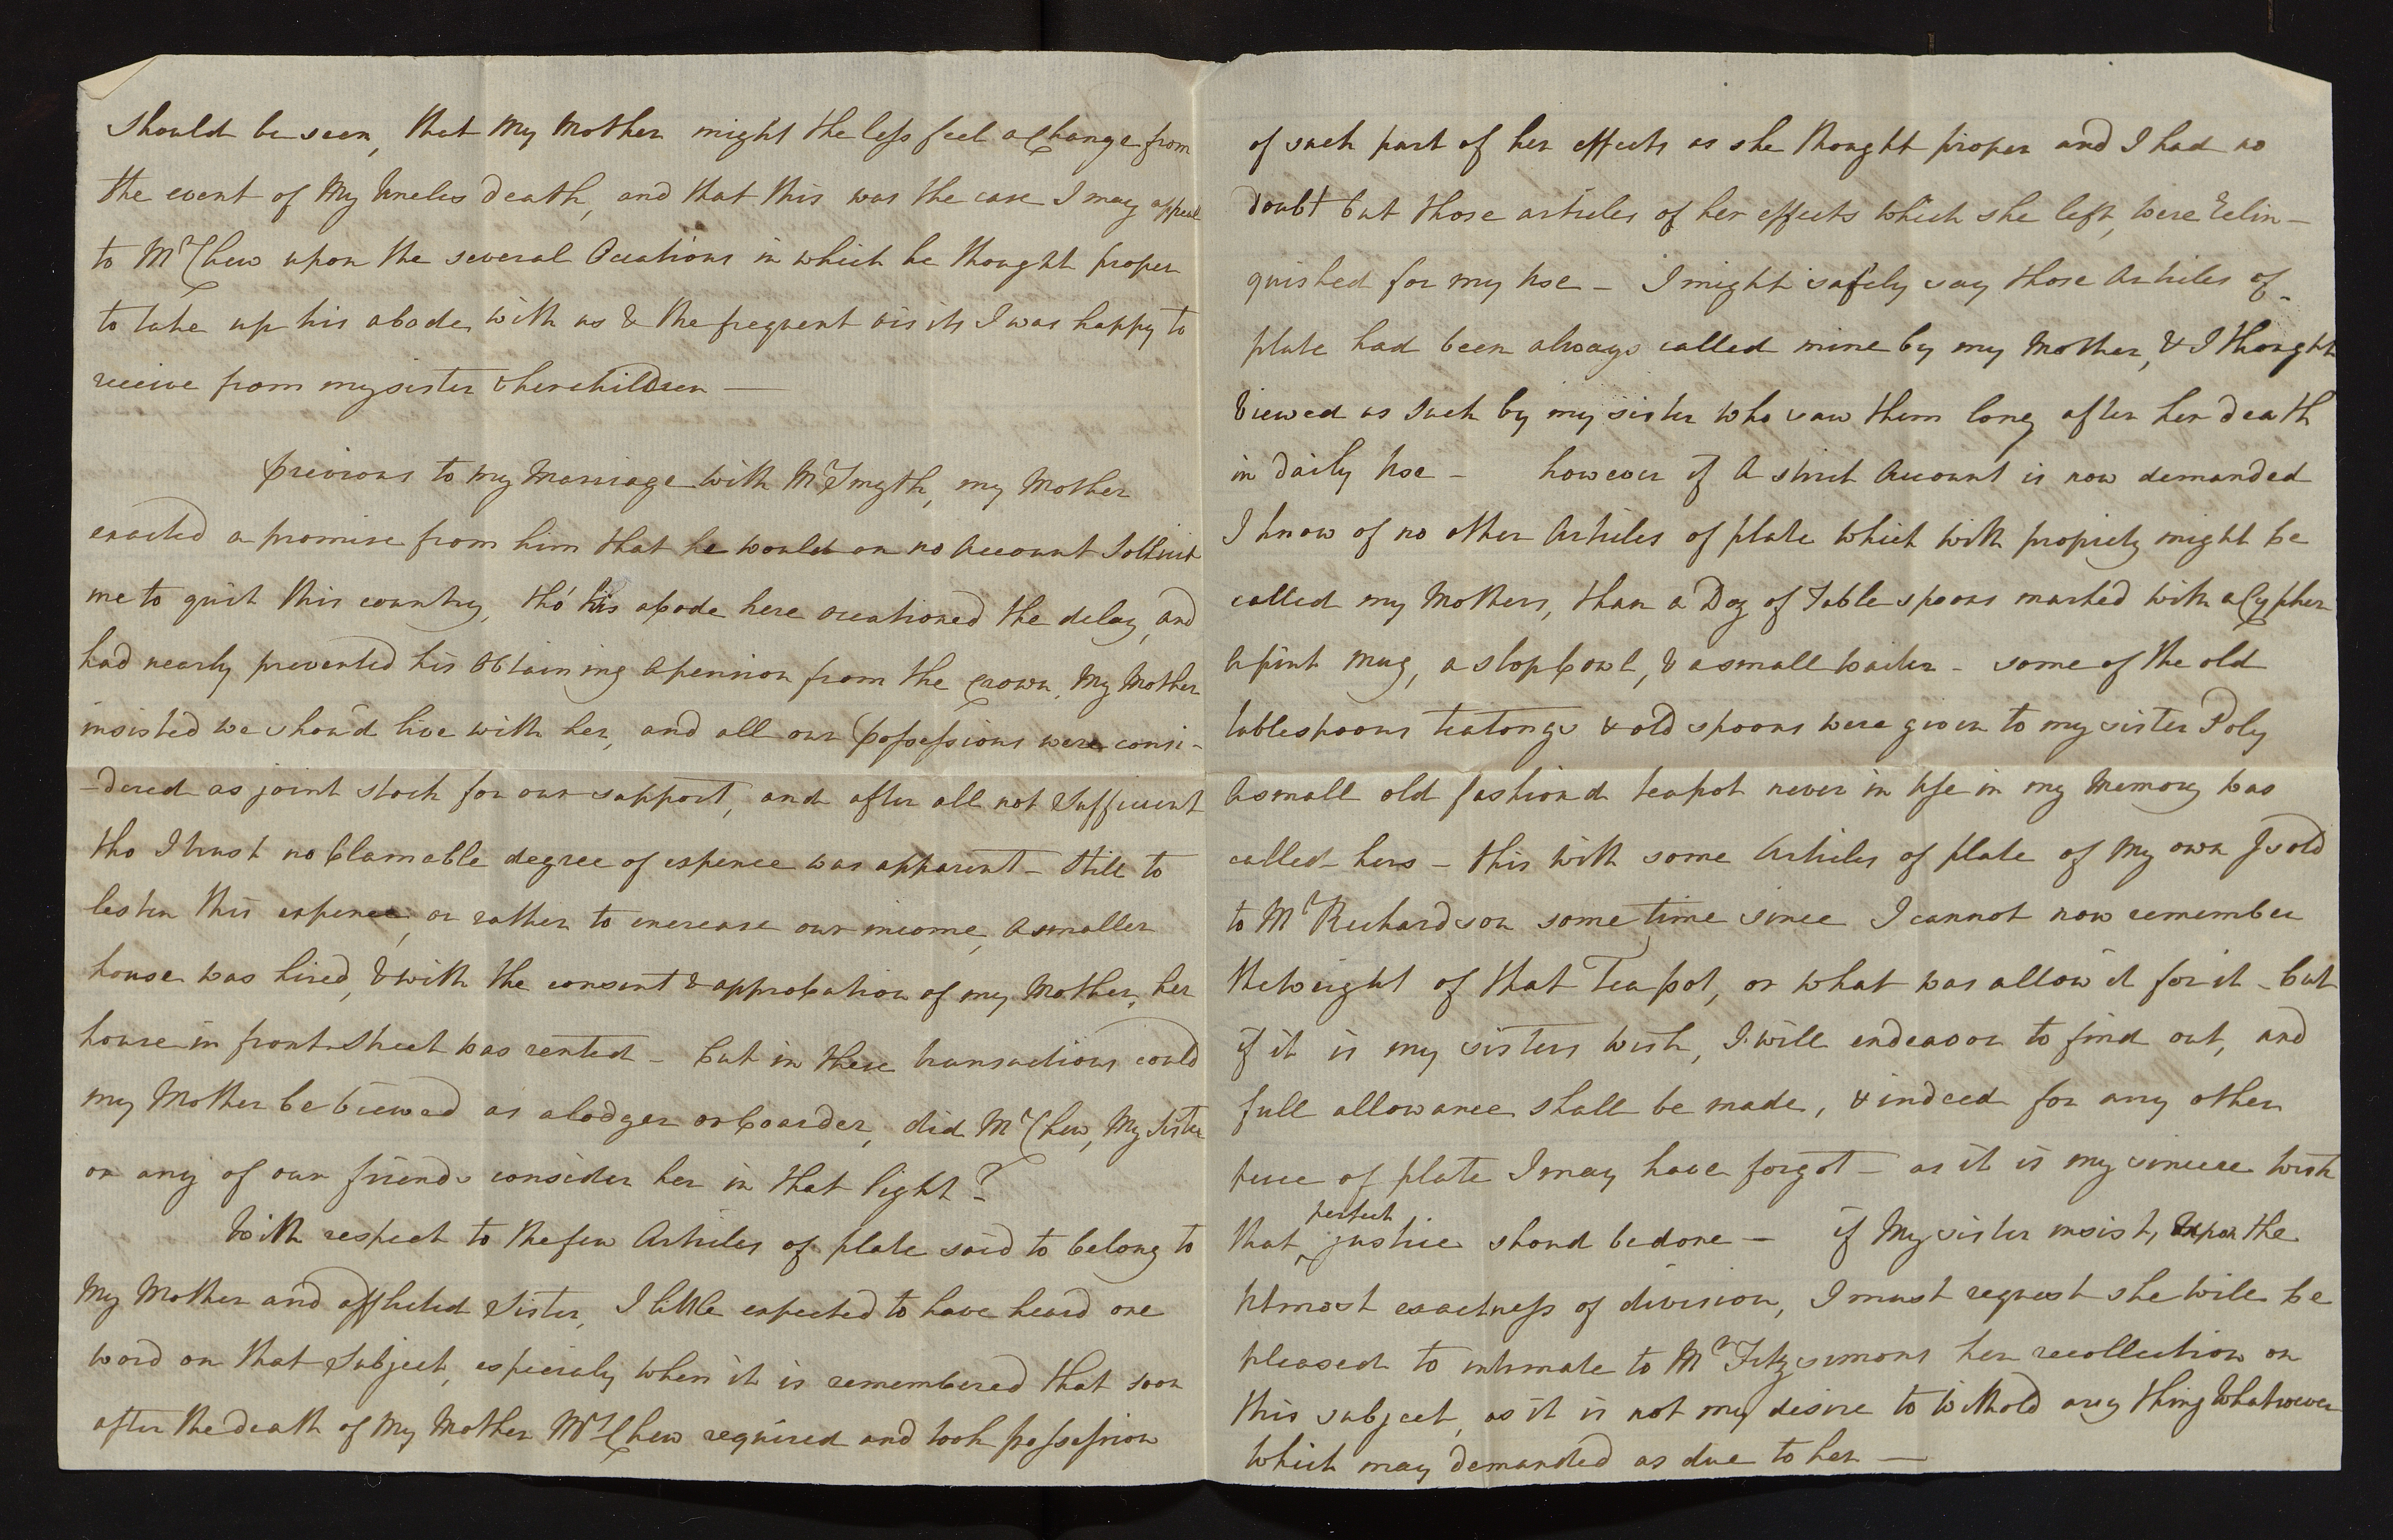 should be seen, that my Mother might the less feel a Change from
the event of My Uncles death, and that this was the case I may appeal
to Mr Chew upon the several Occations in which he thought proper
to take up his abode with us & the frequent visits I was happy to
receive from my sister & her children —
previous to my Marriage with Mr Smyth, my Mother
exacted a promise from him that he would on no Account Sollicit
me to quit this country, tho' his abode here occationed the delay, and
had nearly prevented his Obtaining a pension from the Crown, My Mother
insisted we shou'd live with her, and all our possessions were consi-
-dered as joint stock for our support, and after all not Sufficient
tho I trust no blamable degree of expence was apparent - still to
lesten this expence, or rather to encrease our income, a smaller
house was hired, & with the consent & approbation of my Mother, her
house in front Street was rented - but in these transactions could
my Mother be viewed as a lodger or boarder, did Mr Chew, My Sister
or any of our friends consider her in that light?
With respect to the few Articles of plate said to belong to
My Mother and afflicted Sister, I little expected to have heard one
word on that Subject, especialy when it is remembered that soon
after the death of My Mother Mrs Chew required and took possession
of such part of her effects as she thought proper and I had no
doubt but those articles of her effects which she left, were relin-
quished for my use - I might safely say those Articles of
plate had been always called mine by my Mother, & I thought
viewed as such by my sister who saw them long after her death
in daily use - however if a strict Account is now demanded
I know of no other Articles of plate which with propriety might be
called my Mothers, than a Doz of Table spoons marked with a Cypher
a pint mug, a slop bowl, & a small waiter - some of the old
tablespoons teatongs & old spoons were given to my sister Poly
a small old fashiond teapot never in use in my Memory was
called hers - this with some Articles of plate of My own I sold
to Mr Richardson some time since I cannot now remember
the weight of that Teapot, or what was allow'd for it - but
if it is my sisters wish, I will endeavor to find out, and
full allowance shall be made, & indeed for any other
piece of plate I may have forgot - as it is my sincere wish
that perfect justice shoud be done - if My sister insists, upon the
utmost exactness of division, I must request she will be
pleased to intimate to Mr Fitzsimons her recollection on
this subject, as it is not my desire to withold any thing Whatsoever
which may demanded as due to her —